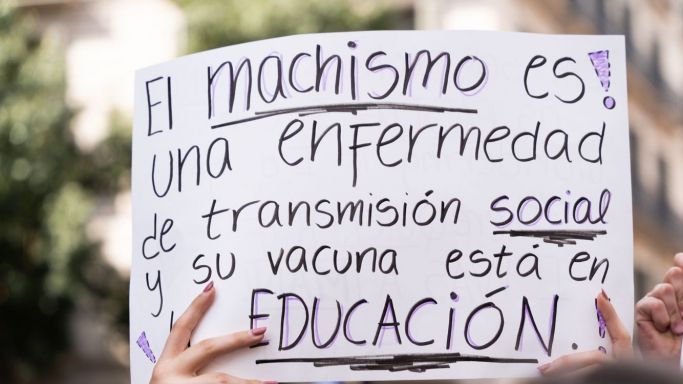 El machismo es!
una enfermedad
de transmisión social
y su vacuna está en
la EDUCACIÓN.!